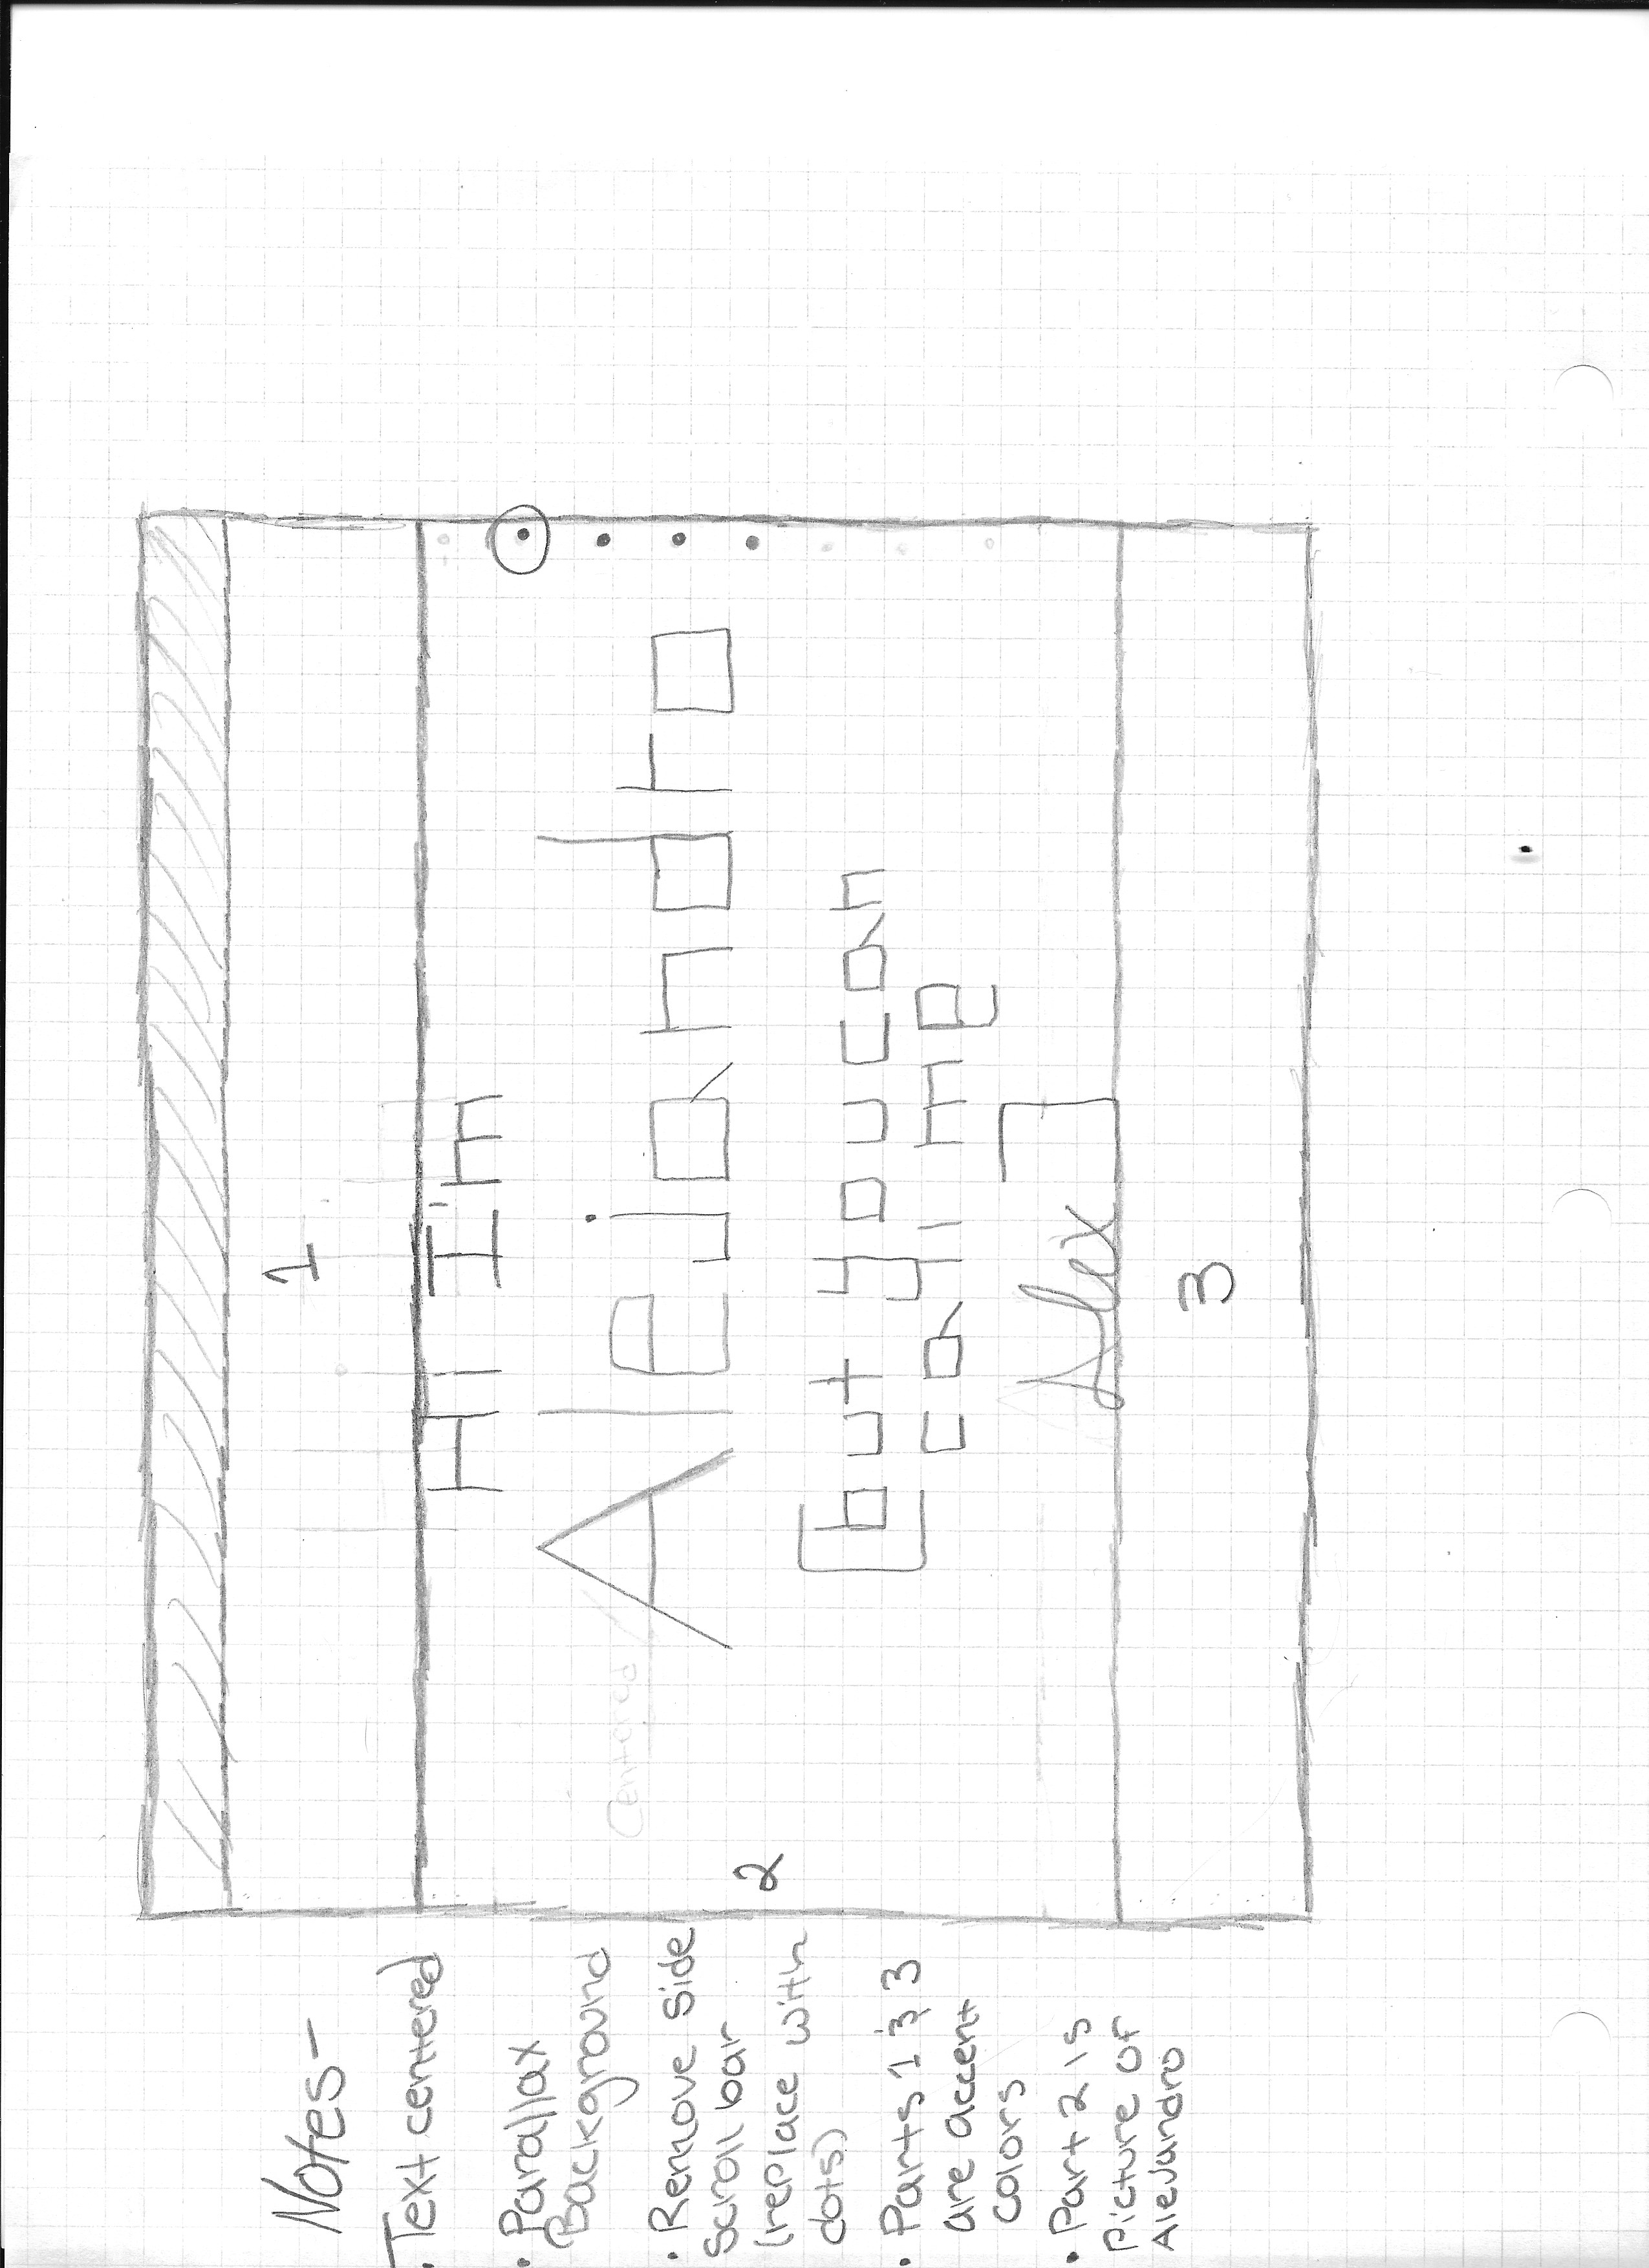 Notes-
. Text centered
• Parallax
Background
• Remove side
scroll bar
(replace with
dots)
• Parts 1 & 3
are accent
colors
• Part 2 is
Picture of
Alejandro
1
Hi I'm
Centered
Alejandro
2
[but you can
call me
Alex]
3